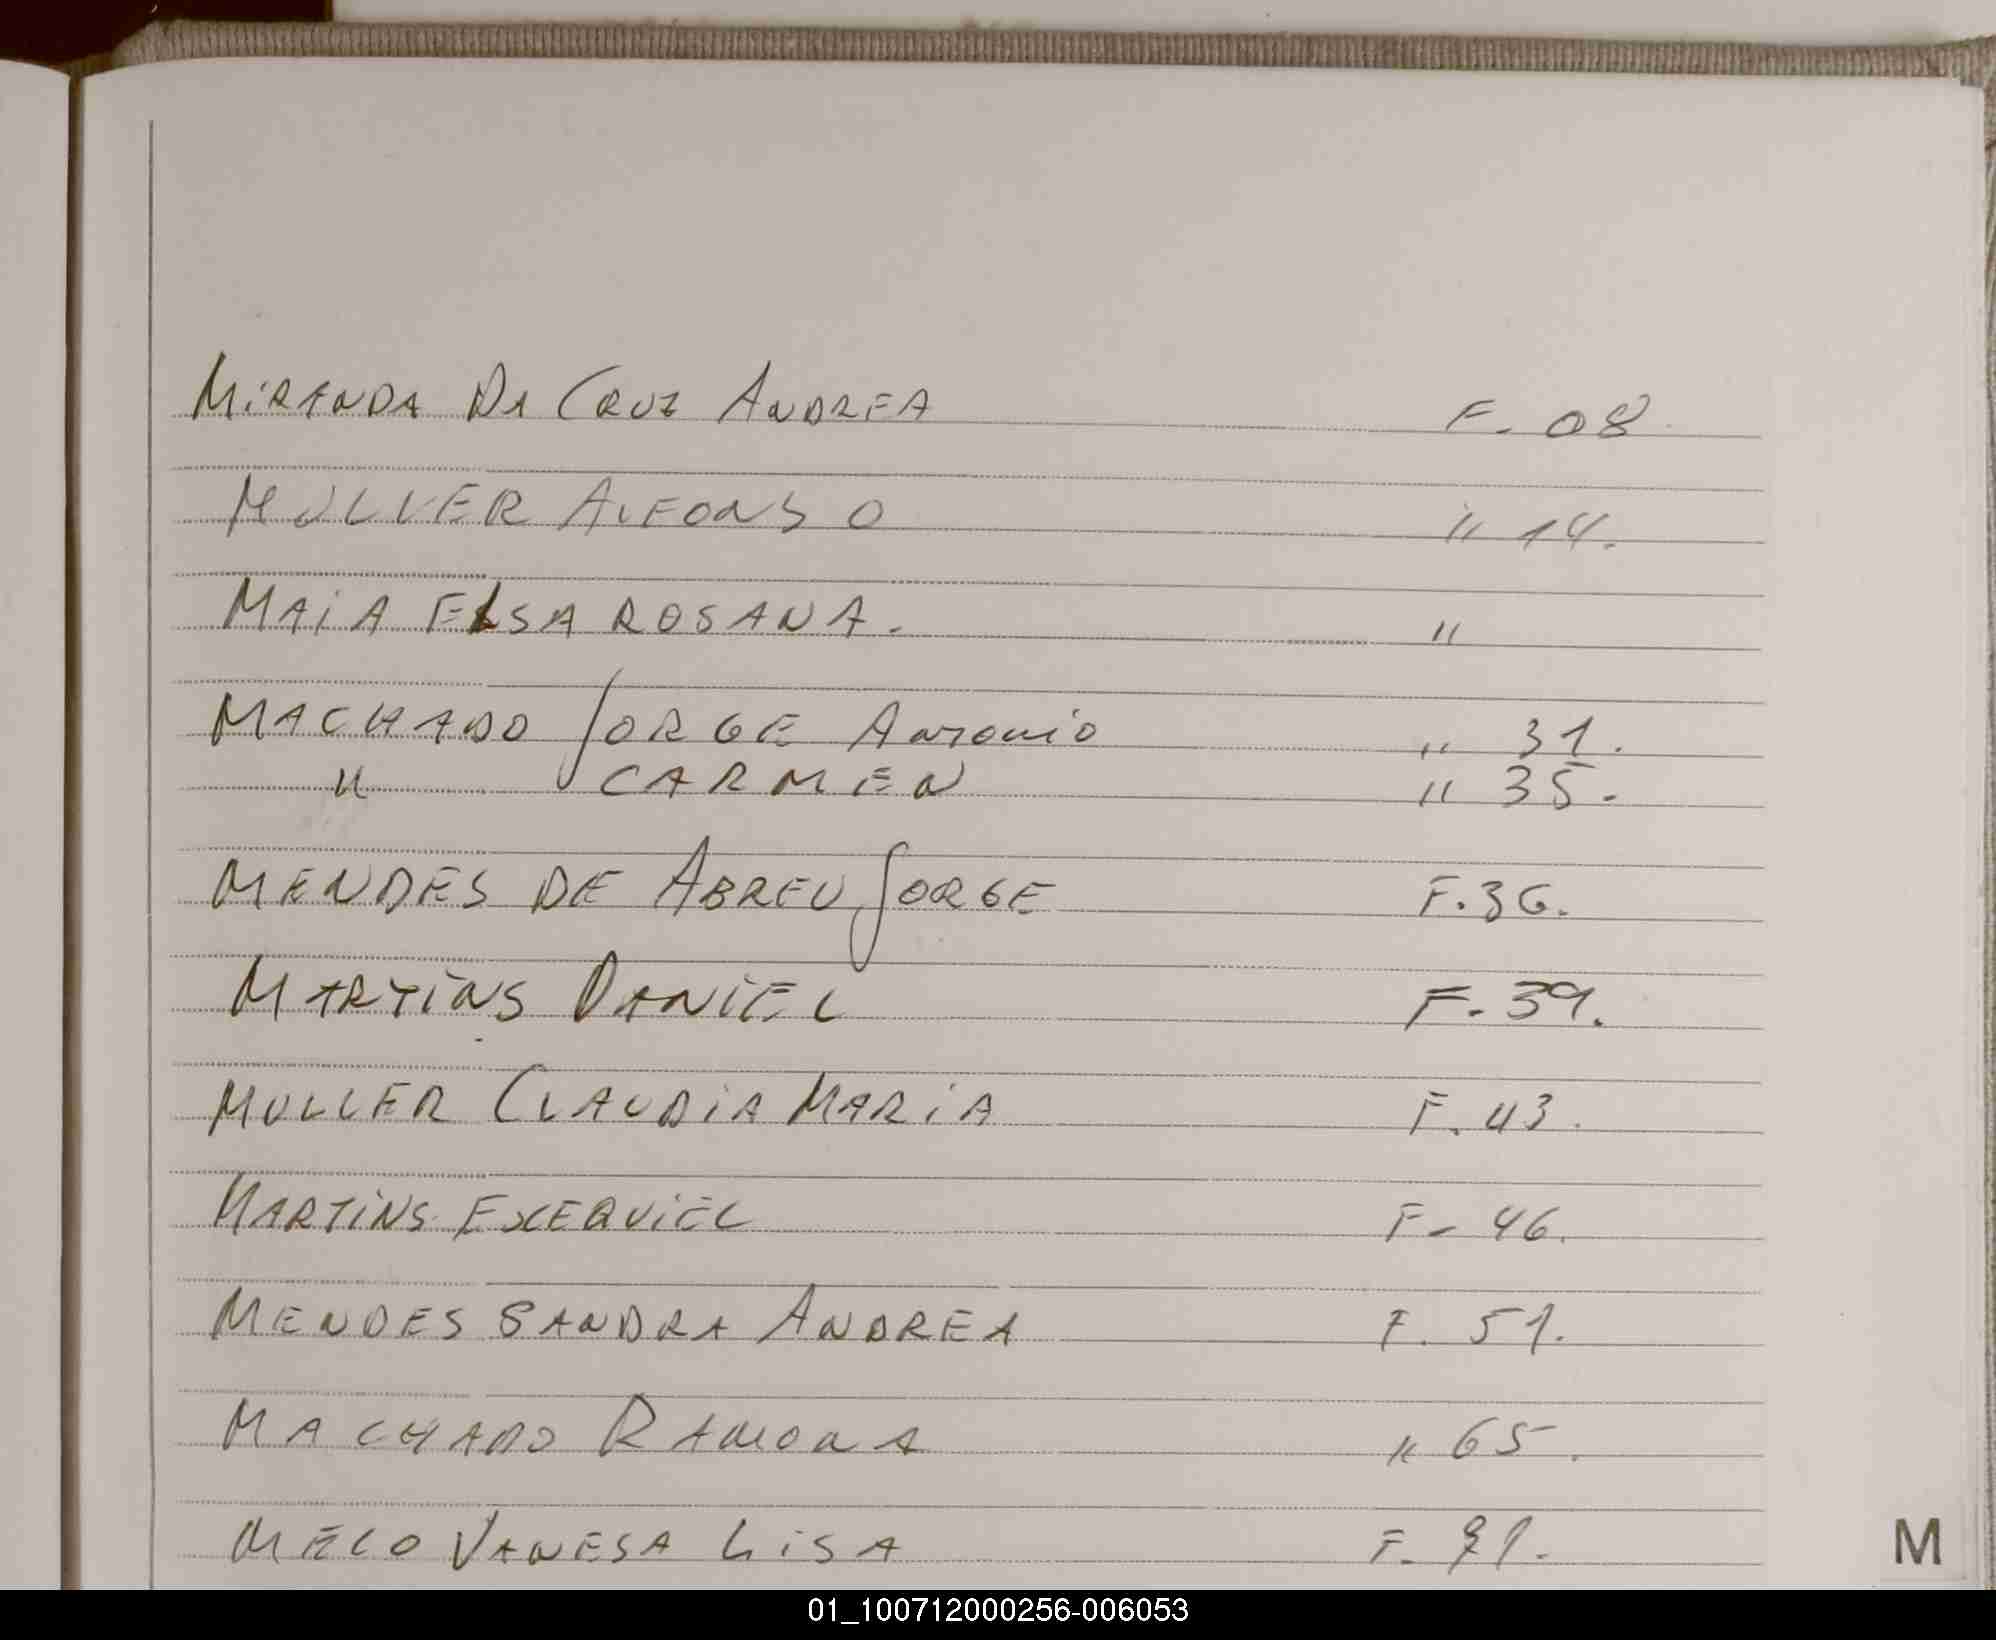 MIRANDA DA CRUZ ANDREA F. 08
MULLER ALFONSO " 14.
MAIA ELSA ROSANA. "
MACHADO JORGE ANTONIO " 31.
" CARMEN " 35.
MENDES DE ABREU JORGE F. 36.
MARTINS DANIEL F. 39.
MULLER CLAUDIA MARIA F. 43.
MARTINS EXEQUIEL F- 46.
MENDES SANDRA ANDREA F. 51.
MACHADO RAMONA " 65.
MELO VANESA LISA F.
M
01_100712000256-006053